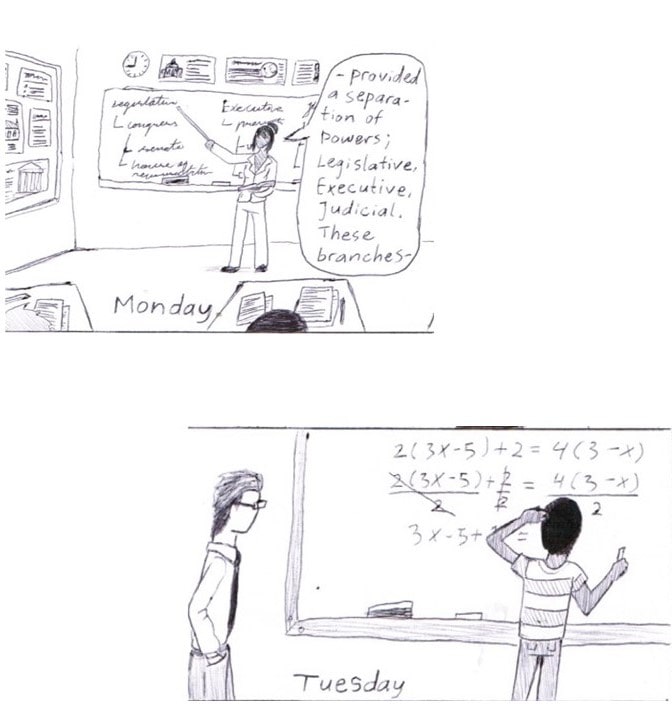 Executive
congress
senate
house of
- provided
a separa-
tion of
Powers;
Legislative,
Executive,
Judicial.
These
branches-
Monday
2(3x-5)+2=4(3-x)
2(3x-5)/2+2/2=4(3-x)/2
3x-5+
=
Tuesday